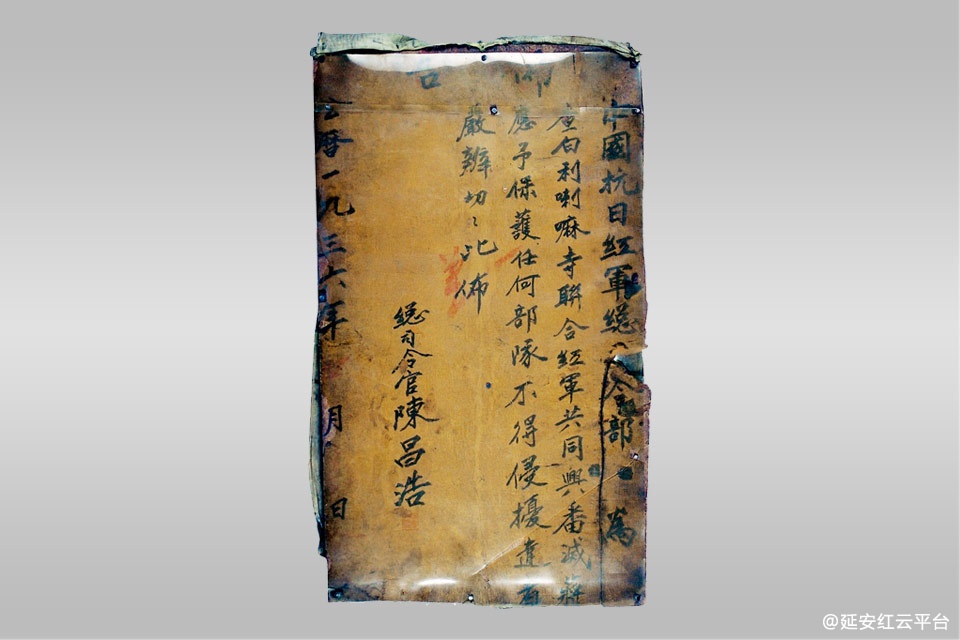 佈告
中國抗日紅軍總司令部 為
查白利喇嘛寺聯合紅軍共同興番滅蔣
應予保護任何部隊不得侵擾違者
嚴辦切切此佈
總司令官陳昌浩
公曆一九三六年 月 日
@延安红云平台